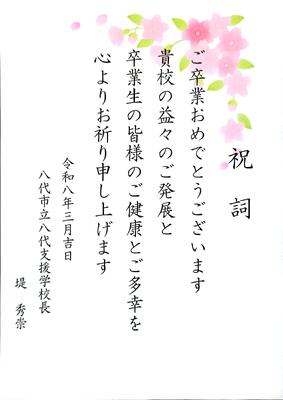 祝詞
ご卒業おめでとうございます
貴校の益々のご発展と
卒業生の皆様のご健康とご多幸を
心よりお祈り申し上げます
令和八年三月吉日
八代市立八代支援学校長
堤 秀崇